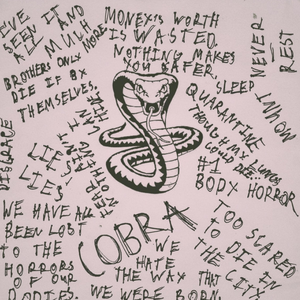 I'VE
SEEN IT
ALL AND
MUCH
MORE.
BROTHERS ONLY
DIE IF BY
THEMSELVES.
MONEY'S WORTH
IS WASTED.
NOTHING MAKES
YOU SAFER.
NEVER
REST
SLEEP
QUARANTINE
#1
BODY HORROR
DISGRACE
LIES
LIES
COBRA
WE HAVE ALL
BEEN LOST
TO THE
HORRORS
OF OUR
BODIES.
WE
HATE
THE WAY THAT
WE WERE BORN.
TOO SCARED
TO DIE IN
THE CITY